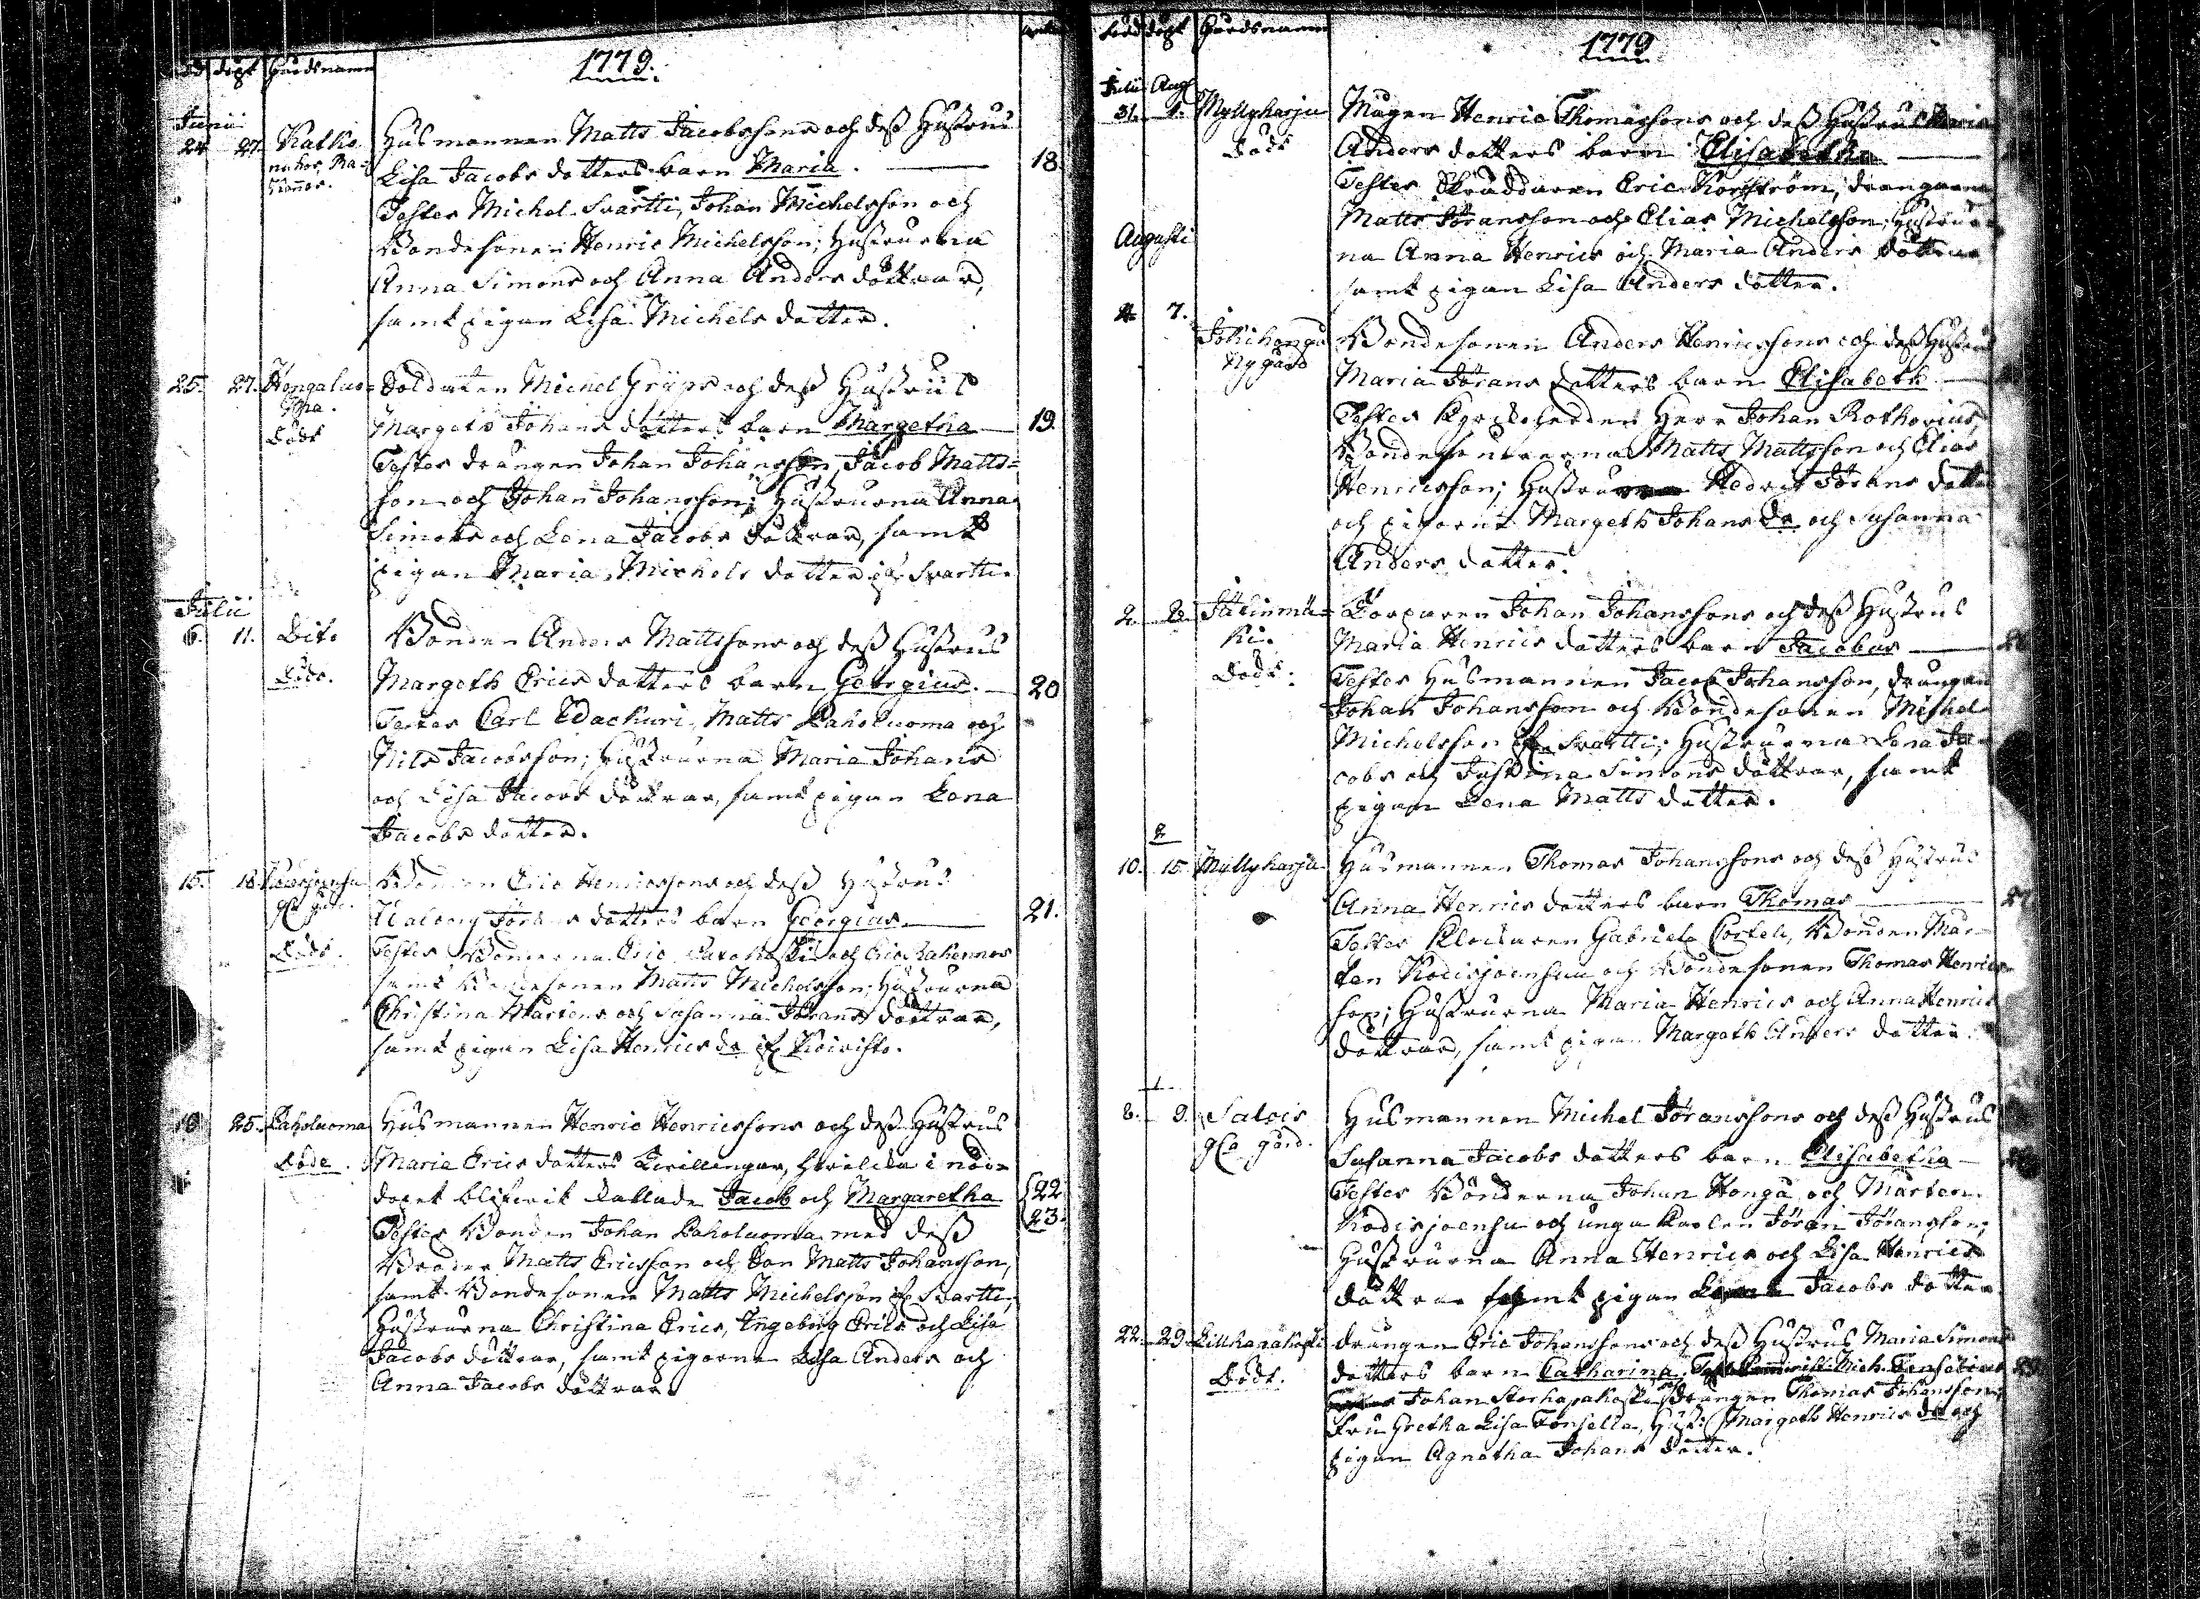 född döpt Gårdsnamn
1779.
Junii
24 27. Katko
nu hos Ra-
Husmannen Matts Jacobssons och dess Hustrus
Lisa Jacobs dotters barn Maria. 18
Testes Michel Svartti, Johan Michelsson och
Bondesonen Henric Michelsson; Hustrurna
Anna Simons och Anna Anders döttrar,
samt pigan Lisa Michels dotter.
25. 27. Hongaluo-
ma.
Död
Soldaten Michel Gryps och dess Hustrus
Margets Johans dotters barn Margetha 19.
Testes drängen Johan Johansson, Jacob Matts-
son och Johan Johansson; Hustrurna Anna
Simons och Lena Jacobs döttrar, samt
pigan Maria Michels dotter ifr. Svartti.
Julii
6. 11. Dito
Död.
Bonden Anders Mattssons och dess Hustrus
Margeth Erics dotters barn Georgius. 20
Testes Carl Wackuri, Matts Paholuoma och
Nils Jacobsson; Hustrurna Maria Johans
och Lisa Jacobs döttrar, samt pigan Lena
Jacobs dotter.
15. 18.
Död.
Bonden Eric Henricssons och dess Hustrus
Walborg Jörans dotters barn Georgius 21.
Testes Bönderna Eric och Eric Rahennos
samt Bondesonen Matts Michelsson; Hustrurna
Christina Mårtens och Susanna Jörans döttrar,
samt pigan Lisa Henrics dr ifr. Koivisto.
19 25. Paholuoma
Död.
Husmannen Henric Henricssons och dess Hustrus
Maria Erics dotters twillingar, hwilcka i nöd-
dopet blifwit kallade Jacob och Margaretha 22
Testes Bonden Johan Paholuoma med dess 23.
Broder Matts Ericsson och Son Matts Johansson,
samt Bondesonen Matts Michelsson ifr. Svartti,
Hustrurna Christina Erics, Ingeborg Erics och Lisa
Jacobs döttrar, samt pigorna Lisa Anders och
Anna Jacobs döttrar.
född döpt Gårdsnamn
1779
Julii Aug.
31. 1. Myllykarju
Död
Mågen Henric Thomassons och dess Hustrus Maria
Anders dotters barn Elisabetha
Testes Skräddaren Eric Korström, drängarne
Matts Jöransson och Elias Michelsson; Hustrur-
na Anna Henrics och Maria Anders döttrar
samt pigan Lisa Anders dotter.
Augusti
4 7.
Jokihonga
Nygård
Bondesonen Anders Henricssons och dess Hustrus
Maria Jörans dotters barn Elisabeth
Testes Kyrckoherden Herr Johan Rothovius,
Bondesönerna Matts Mattsson och Elias
Henricsson; Hustrun Hedvig Jörans dotter
och pigorne Margeth Johans dr och Susanna
Anders dotter.
2 8
ki.
Död.
Torparen Johan Johanssons och dess Hustrus
Maria Henrics dotters barn Jacobus
Testes Husmannen Jacob Johansson, drängen
Johan Johansson och Bondesonen Michel
Michelsson ifr. Svartti; Hustrurna Lena Ja-
cobs och Justina Simons döttrar, samt
pigan Lena Matts dotter.
2
10. 15. Myllykarju
Husmannen Thomas Johanssons och dess Hustrus
Anna Henrics dotters barn Thomas 27
Testes Klockaren Gabriel Cortell, Bonden Mår-
ten Kodisjoensuu och Bondesonen Thomas Henrics-
son; Hustrurna Maria Henrics och Anna Henrics
döttrar, samt pigan Margeth Anders dotter.
1
8. 9. Salois
gla gård.
Husmannen Michel Jöranssons och dess Hustrus
Susanna Jacobs dotters barn Elisabetha
Testes Bönderna Johan Honga och Mårten
Kodisjoensuu och unga Karlen Jöran Jöransson;
Hustrurna Anna Henrics och Lisa Henrics
döttrar samt pigan Jacobs dotter
22. 29.
Död.
Drängen Eric Johanssons och dess Hustrus Maria Simons
dotters barn Catharina. 29
Johan Storhapakoski, Drängen Thomas Johansson;
Fru Gretha Lisa Forsella, Hust: Margeth Henrics dr och
pigan Agnetha Johans dotter.